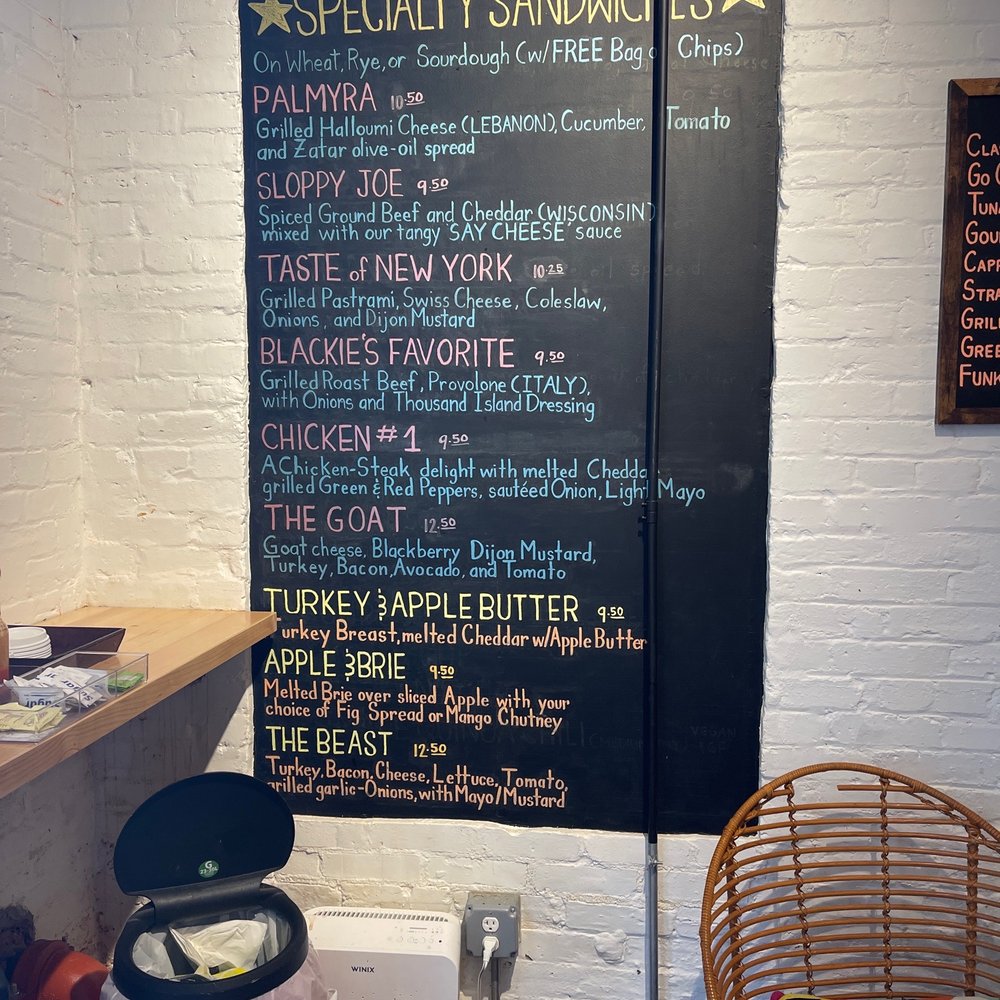 SPECIALTY SANDWICHES
On Wheat, Rye, or Sourdough (w/FREE Bag of Chips)
PALMYRA 10.50
Grilled Halloumi Cheese (LEBANON), Cucumber, Tomato
and Zatar olive-oil spread
SLOPPY JOE 9.50
Spiced Ground Beef and Cheddar (WISCONSIN)
mixed with our tangy 'SAY CHEESE' sauce
TASTE of NEW YORK 10.25
Grilled Pastrami, Swiss Cheese, Coleslaw,
Onions, and Dijon Mustard
BLACKIE'S FAVORITE 9.50
Grilled Roast Beef, Provolone (ITALY),
with Onions and Thousand Island Dressing
CHICKEN #1 9.50
A Chicken-Steak delight with melted Chedda
grilled Green & Red Peppers, sautéed Onion, Light Mayo
THE GOAT 12.50
Goat cheese, Blackberry Dijon Mustard,
Turkey, Bacon, Avocado, and Tomato
TURKEY & APPLE BUTTER 9.50
Turkey Breast, melted Cheddar w/Apple Butter
APPLE & BRIE 9.50
Melted Brie over sliced Apple with your
choice of Fig Spread or Mango Chutney
THE BEAST 12.50
Turkey, Bacon, Cheese, Lettuce, Tomato,
grilled garlic-Onions, with Mayo/Mustard
CLA
GO
TUNA
GOU
CAPR
STRA
GRIL
GREE
FUNK
WINIX
G